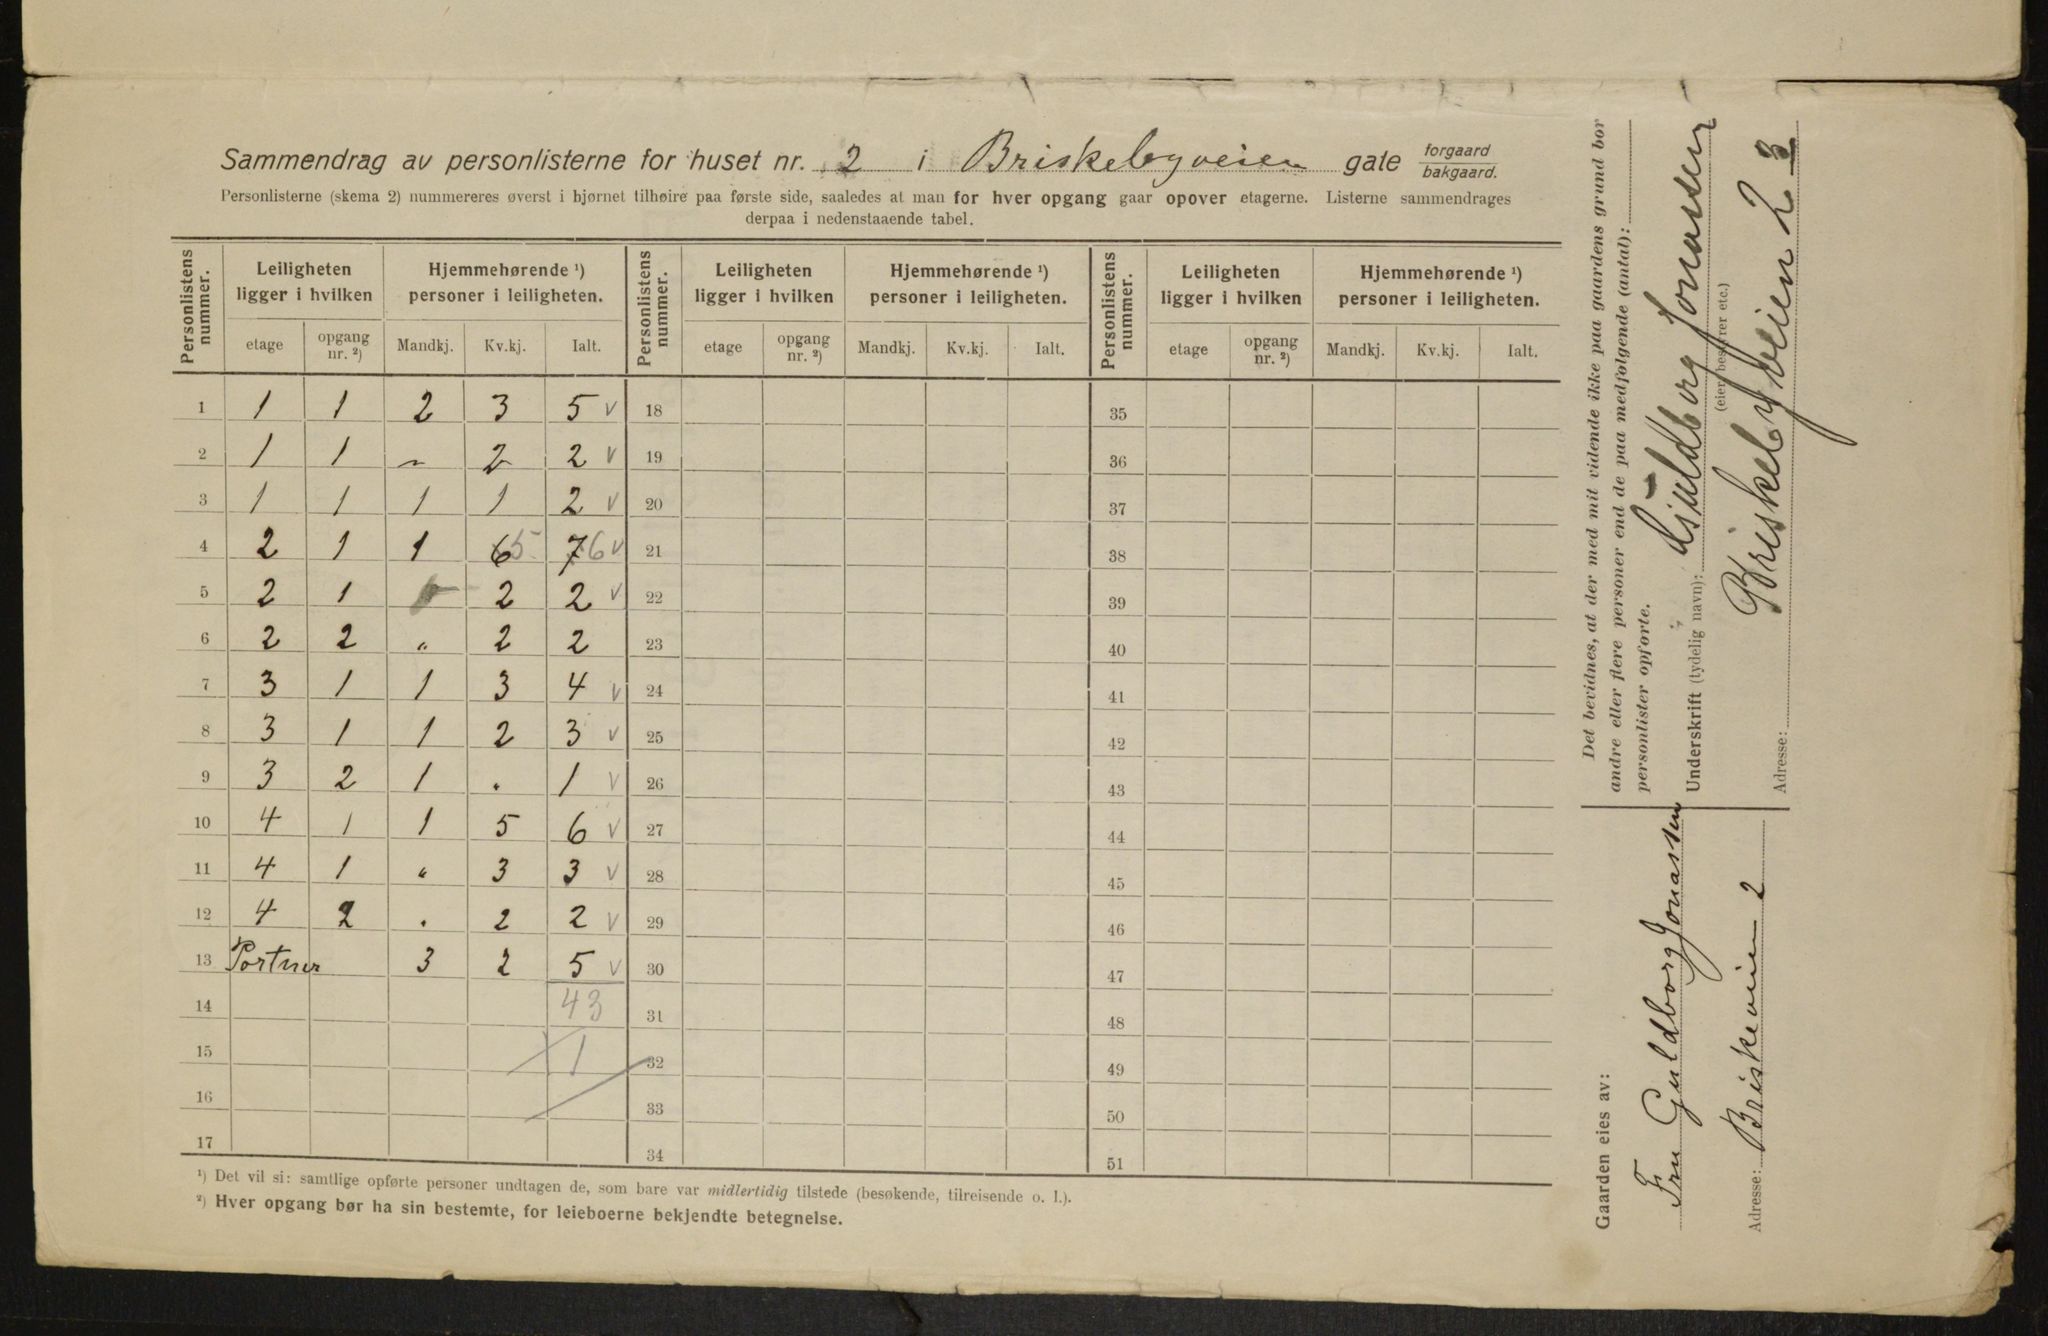 Sammendrag av personlisterne for huset nr. 2 i Briskebyveien gate forgaard bakgaard.
Personlisterne (skema 2) nummereres øverst i hjørnet tilhøire paa første side, saaledes at man for hver opgang gaar opover etagerne. Listerne sammendrages
derpaa i nedenstaaende tabel.
Personlistens nummer. Leiligheten ligger i hvilken Hjemmehørende ¹) personer i leiligheten. Personlistens nummer. Leiligheten ligger i hvilken Hjemmehørende ¹) personer i leiligheten. Personlistens nummer. Leiligheten ligger i hvilken Hjemmehørende ¹) personer i leiligheten.
etage opgang nr. ²) Mandkj. Kv.kj. Ialt. etage opgang nr. ²) Mandkj. Kv.kj. Ialt. etage opgang nr. ²) Mandkj. Kv.kj. Ialt.
1 1 1 2 3 5 v 18 35
2 1 1 „ 2 2 v 19 36
3 1 1 1 1 2 v 20 37
4 2 1 1 6 5 7 6 v 21 38
5 2 1 2 2 v 22 39
6 2 2 „ 2 2 23 40
7 3 1 1 3 4 v 24 41
8 3 1 1 2 3 v 25 42
9 3 2 1 „ 1 v 26 43
10 4 1 1 5 6 v 27 44
11 4 1 „ 3 3 v 28 45
12 4 2 „ 2 2 v 29 46
13 Portner 3 2 5 v 30 47
14 43 31 48
15 1 32 49
16 33 50
17 34 51
¹) Det vil si: samtlige opførte personer undtagen de, som bare var midlertidig tilstede (besøkende, tilreisende o. l.).
²) Hver opgang bør ha sin bestemte, for leieboerne bekjendte betegnelse.
Det bevidnes, at der med mit vidende ikke paa gaardens grund bor
andre eller flere personer end de paa medfølgende (antal):
personlister opførte.
Underskrift (tydelig navn): Guldborg Jonassen
(eier, bestyrer etc.)
Adresse: Briskebyveien 2
Gaarden eies av:
Fru Guldborg Jonassen
Adresse: Briskeveien 2